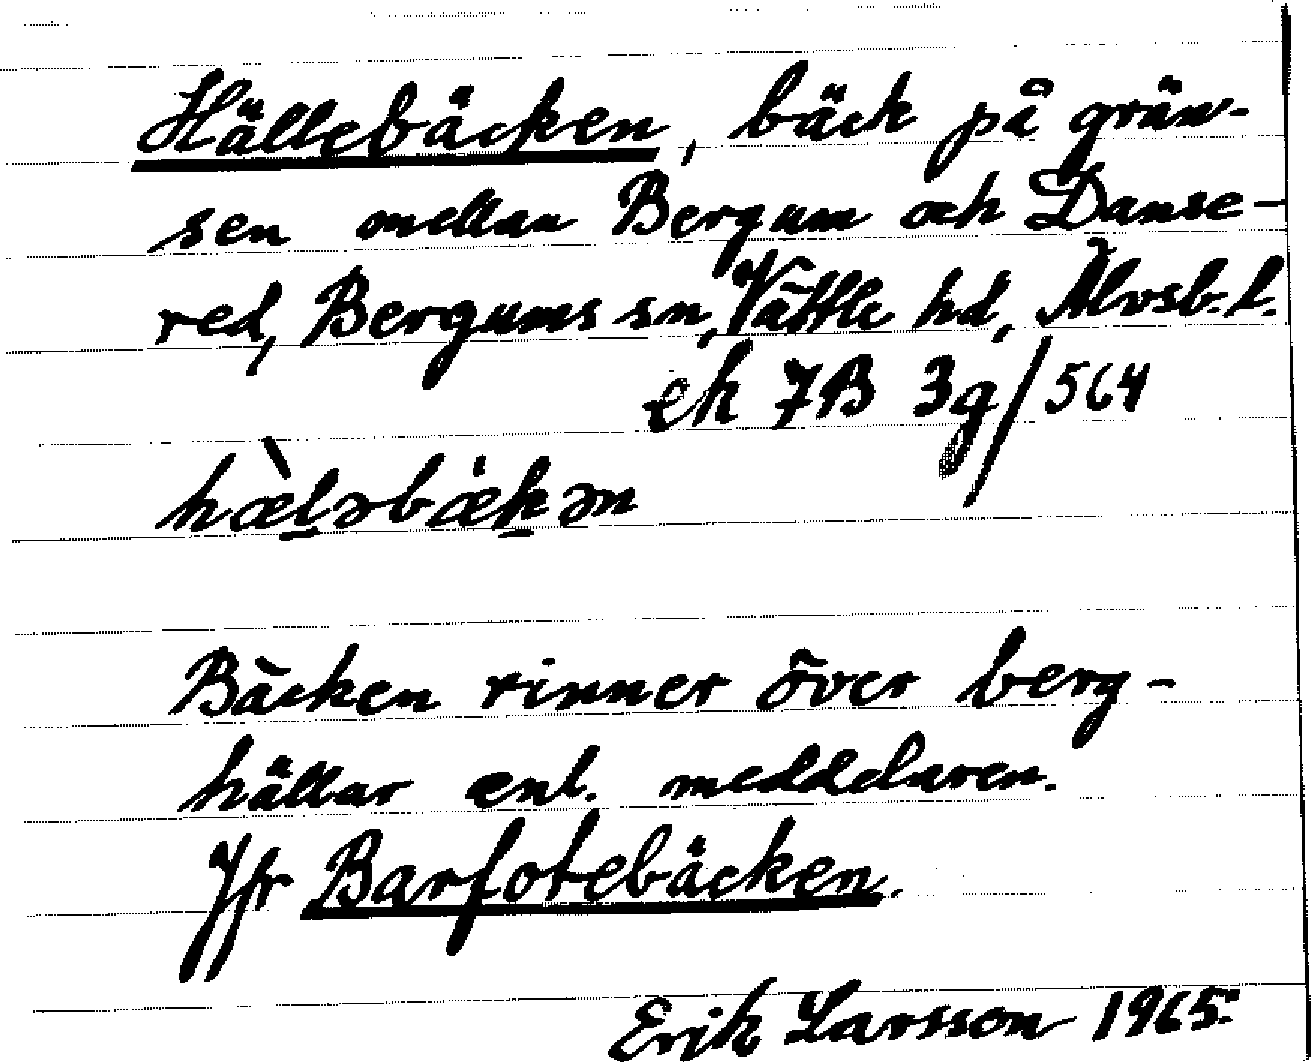 Hällebäcken, bäck på grän-
sen mellan Bergum och Danse-
red, Bergums sn, Vättle hd, Älvsb. l.
ek 7B 3g/564
hæ̀lәbækәn
Bäcken rinner över berg-
hällar enl. meddelaren.
Jfr Barfotebäcken.
Erik Larsson 1965.